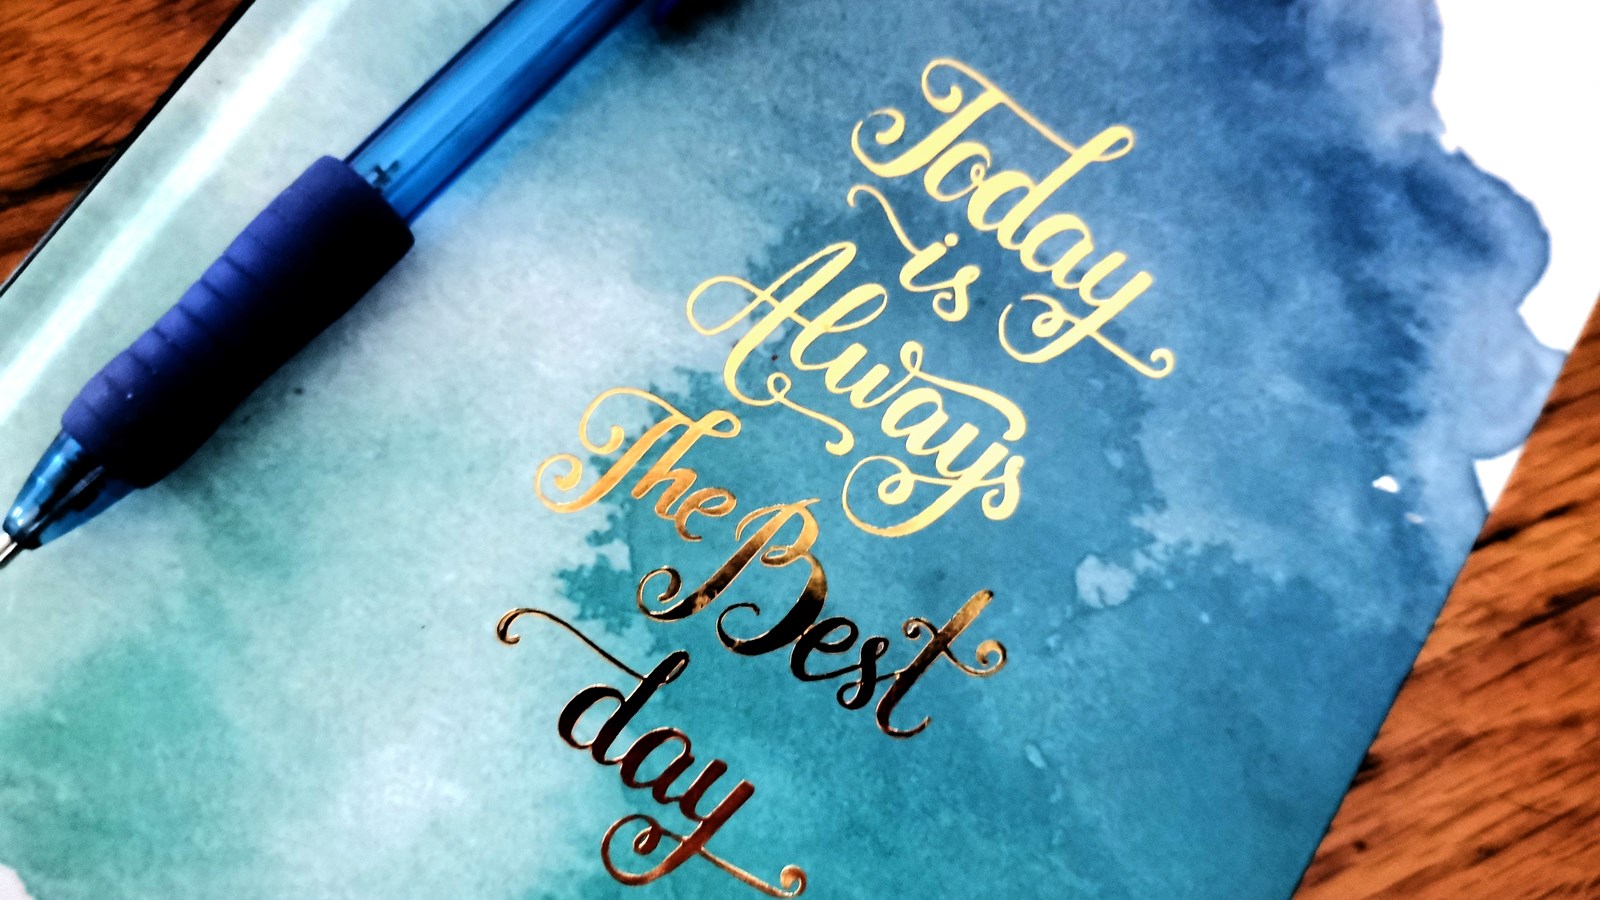 Today
is
Always
The Best
day